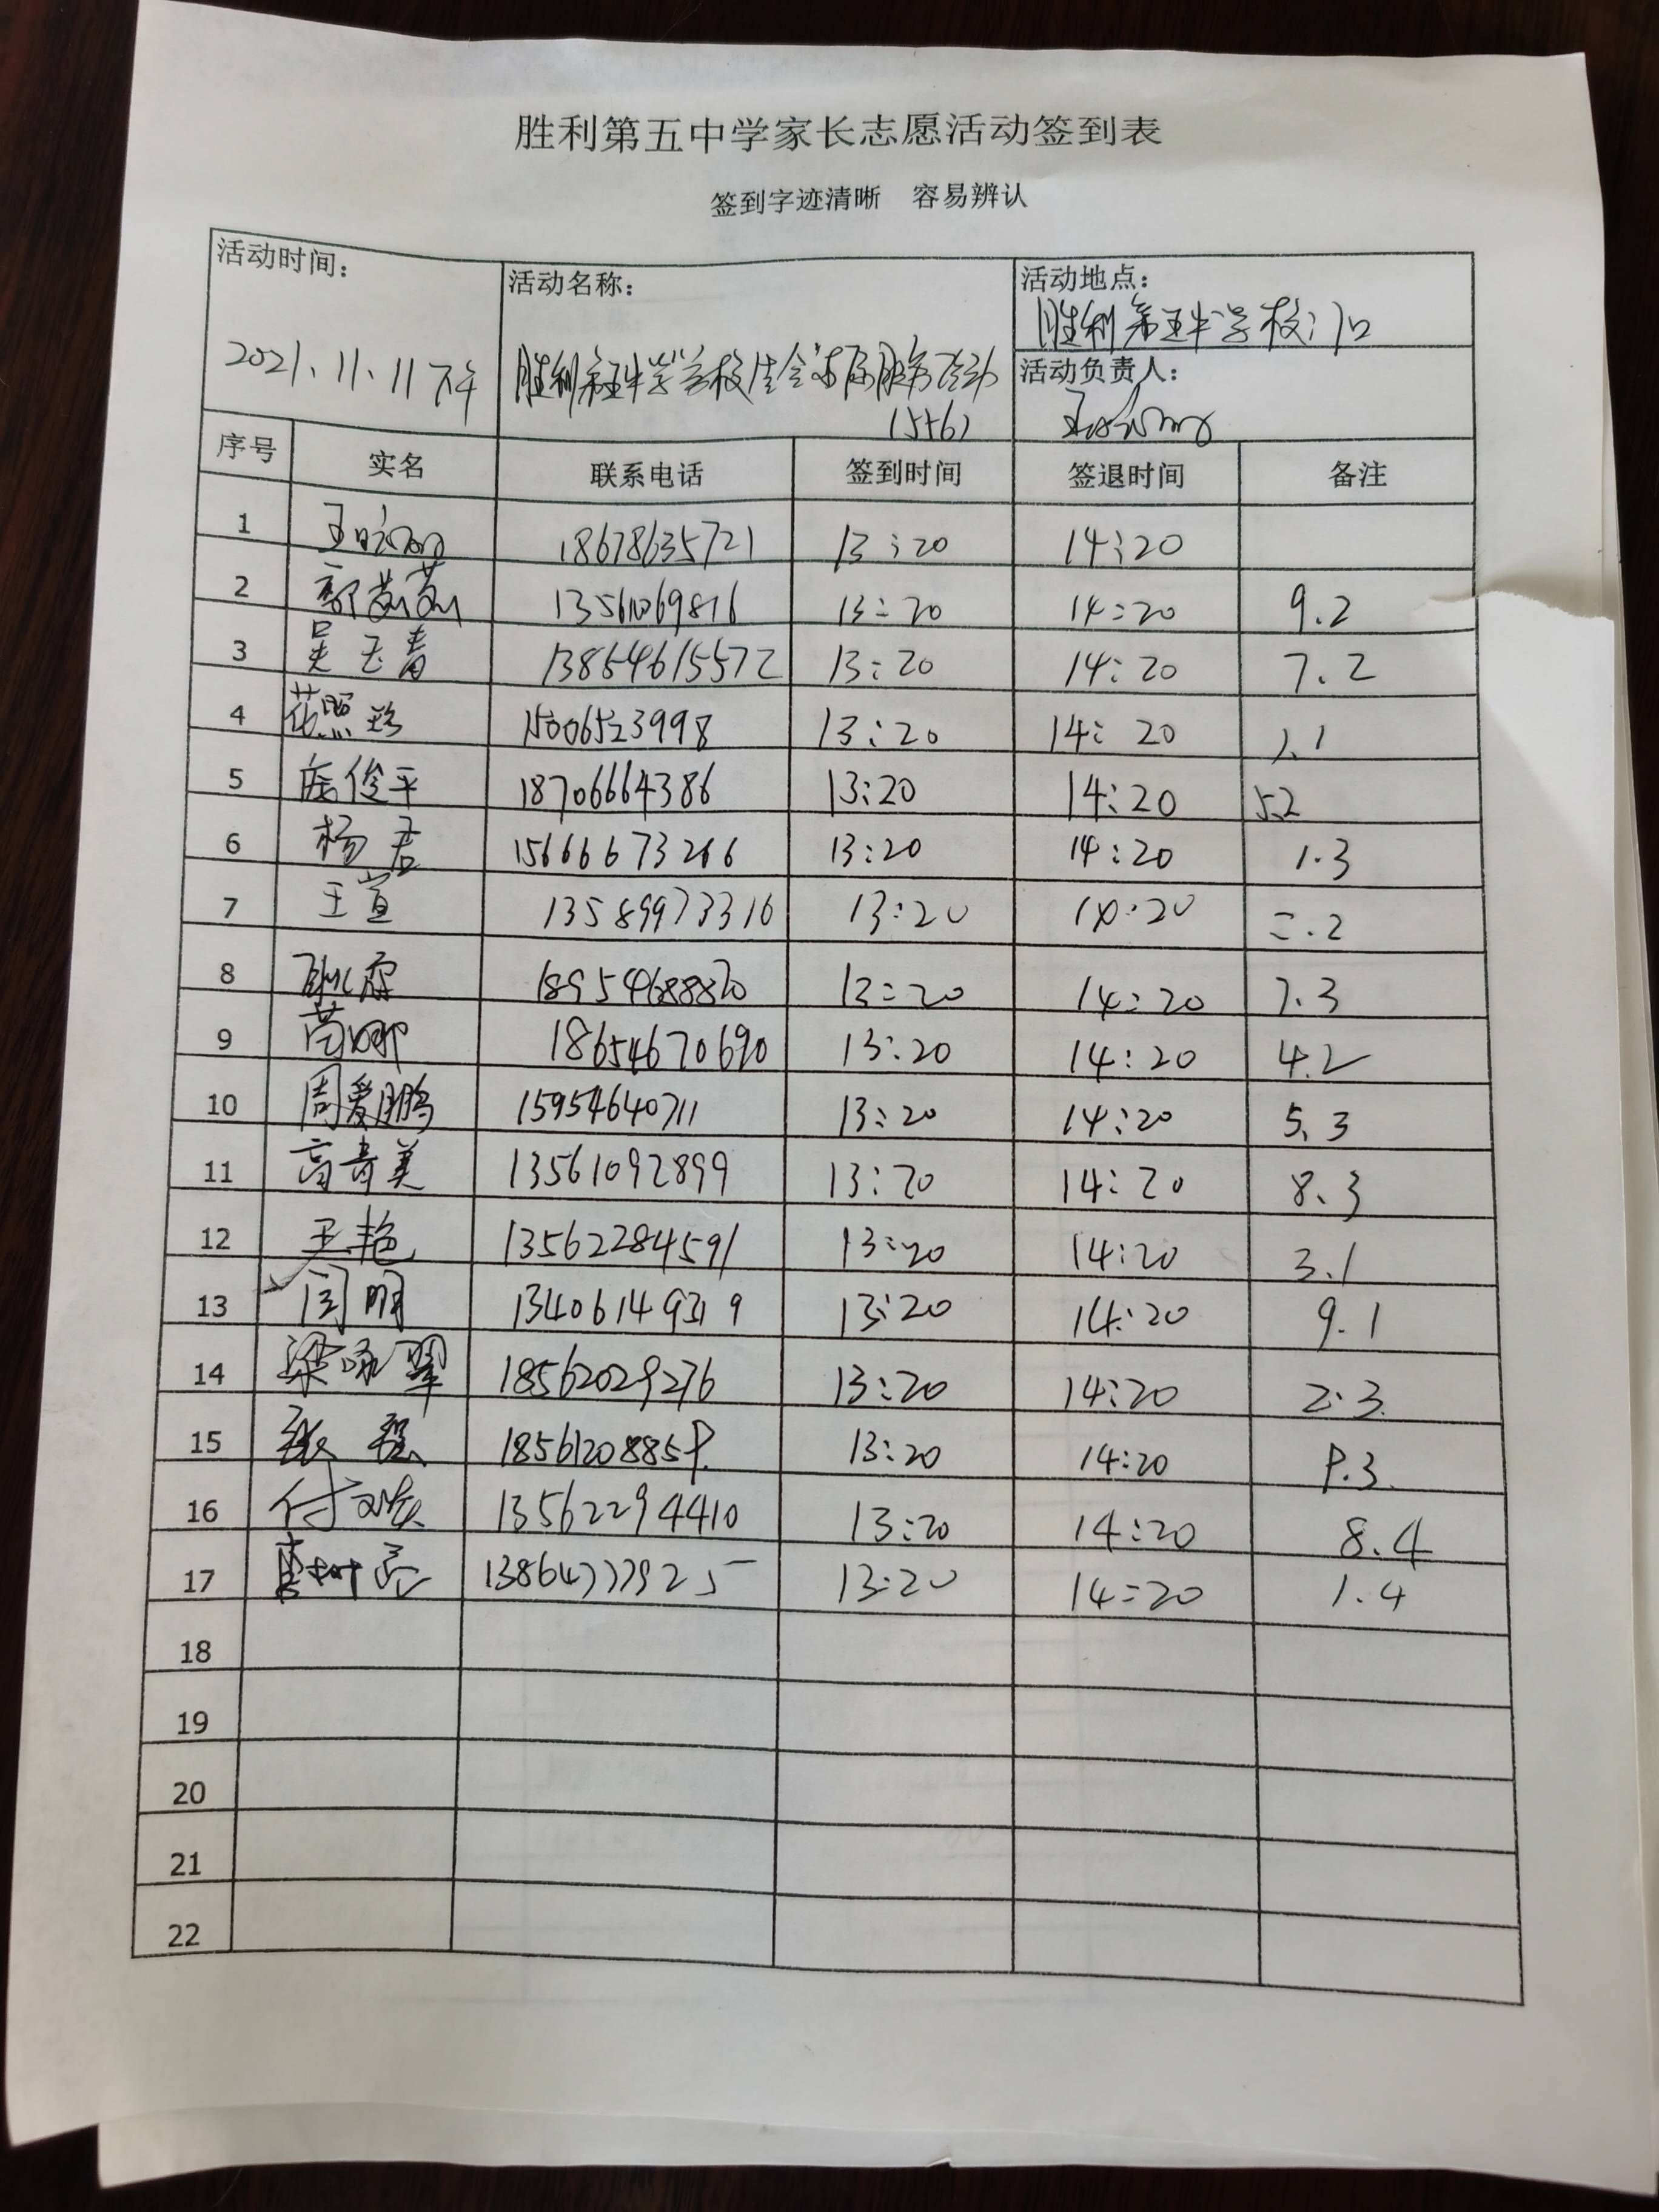 胜利第五中学家长志愿活动签到表
签到字迹清晰 容易辨认
活动时间: 活动名称: 活动地点:
胜利第五中学校门口
2021.11.11下午 胜利第五中学学校 服务活动 活动负责人:
序号 实名 联系电话 签到时间 签退时间 备注
1 18678635721 13:20 14:20
2 郭茹茹 13561069816 13:20 14:20 9.2
3 吴玉青 13854615572 13:20 14:20 7.2
4 花照珍 15006523998 13:20 14:20
5 俊平 18706664386 13:20 14:20 5.2
6 杨君 15666673266 13:20 14:20 1.3
7 王宣 13589973316 13:20 14:20 二.2
8 18954688820 13:20 14:20 7.3
9 娜 18654670690 13:20 14:20 4.2
10 周爱鹏 15954640711 13:20 14:20 5.3
11 高奇美 13561092899 13:20 14:20 8.3
12 王艳 13562284591 13:20 14:20 3.1
13 闫明 13:20 14:20 9.1
14 梁咏翠 18562029276 13:20 14:20 2.3
15 张 13:20 14:20
16 付 13562294410 13:20 14:20 8.4
17 13:20 14:20 1.4
18
19
20
21
22